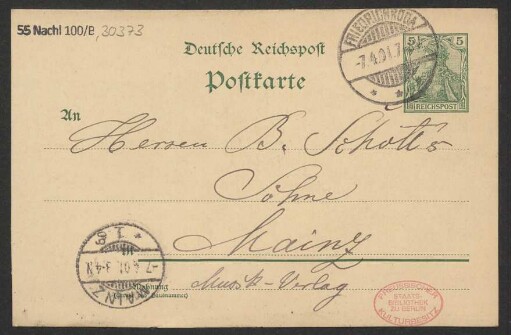 55 Nachl 100/B,30373
Deutsche Reichspost
Postkarte
FRIEDRICHRODA
-7.4.01.7
5 5
REICHSPOST
An
Herren B. Schott's
Söhne
Mainz
Musik-Verlag
MAINZ
-7.4.01.3-4N
PREUSSISCHER
STAATS-
BIBLIOTHEK
ZU BERLIN
KULTURBESITZ